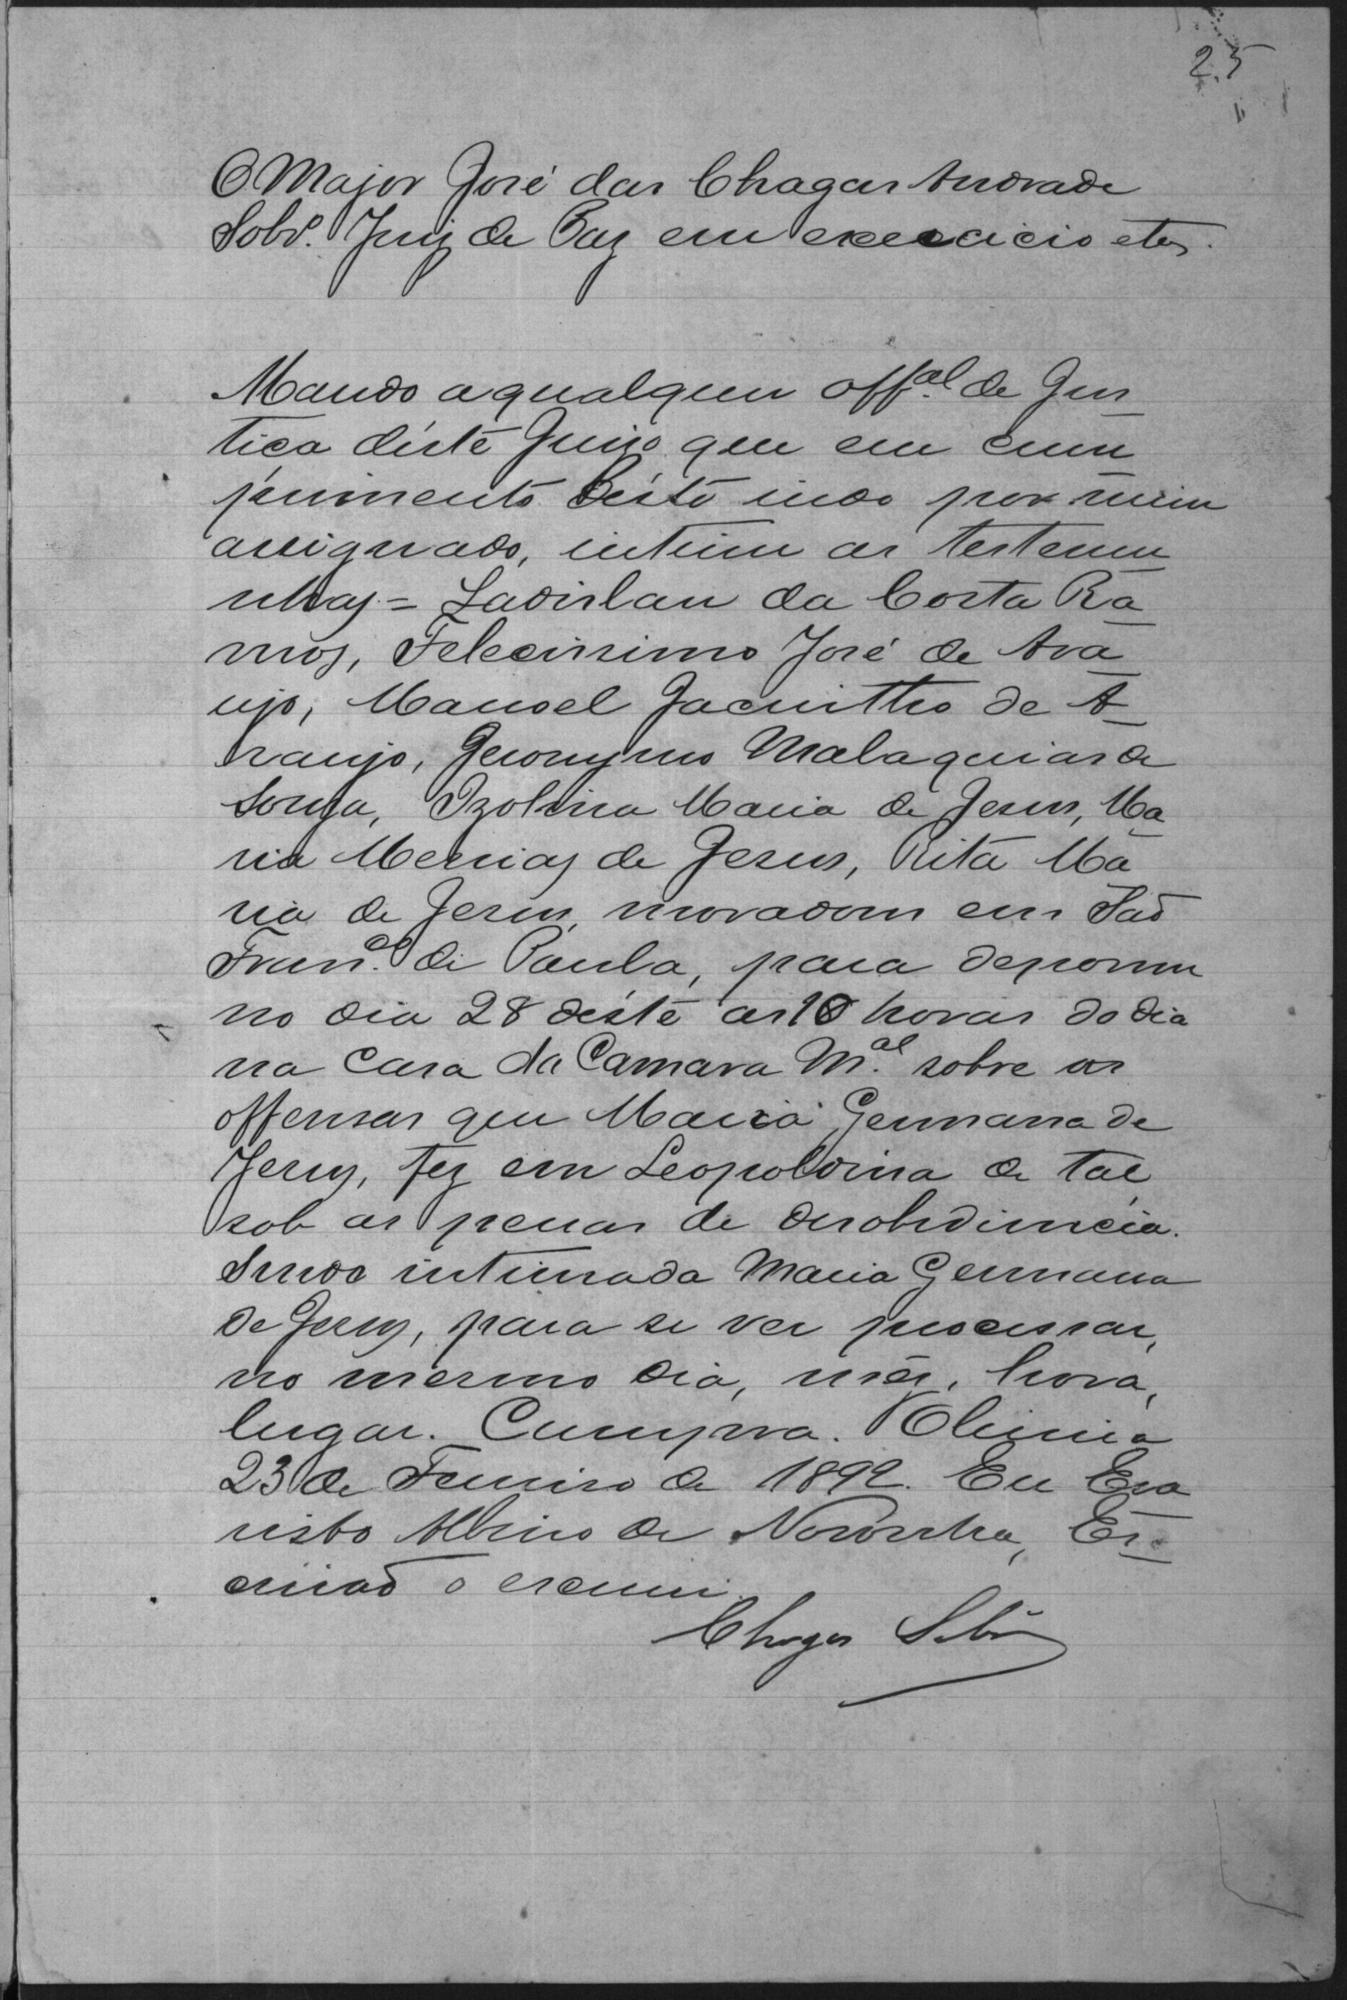 25
O Major José das Chagas Andrade
Sobrº. Juiz de Paz em execicio etc.
Mando a qualquer offal. de Jus
tiça déste Juizo que em cum
primento déste indo por mim
assignado, intime as testemu
nhas = Ladislau da Costa Ra
mos, Felecissimo José de Ara
ujo, Manoel Jacintho de A
raujo, Geronymo Malaquias de
Souza, Izolina Maria de Jesus, Ma
ria Mecias de Jesus, Rita Ma
ria de Jesus, moradores em São
Francº. de Paula, para deporem
no dia 28 déste as 10 horas do dia
na casa da Camara Mal. sobre as
offensas que Maria Germana de
Jesus, fez em Leopoldina de tal,
sob as penas de desobediencia.
Sendo intimada Maria Germana
de Jesus, para se ver processar,
no mesmo dia, mês, hora,
lugar. Cumpra.
23 de Fevereiro de 1892. Eu Eva
risto Albino de Noronha, Es
crivaõ o escrevi.
Chagas Sobrº